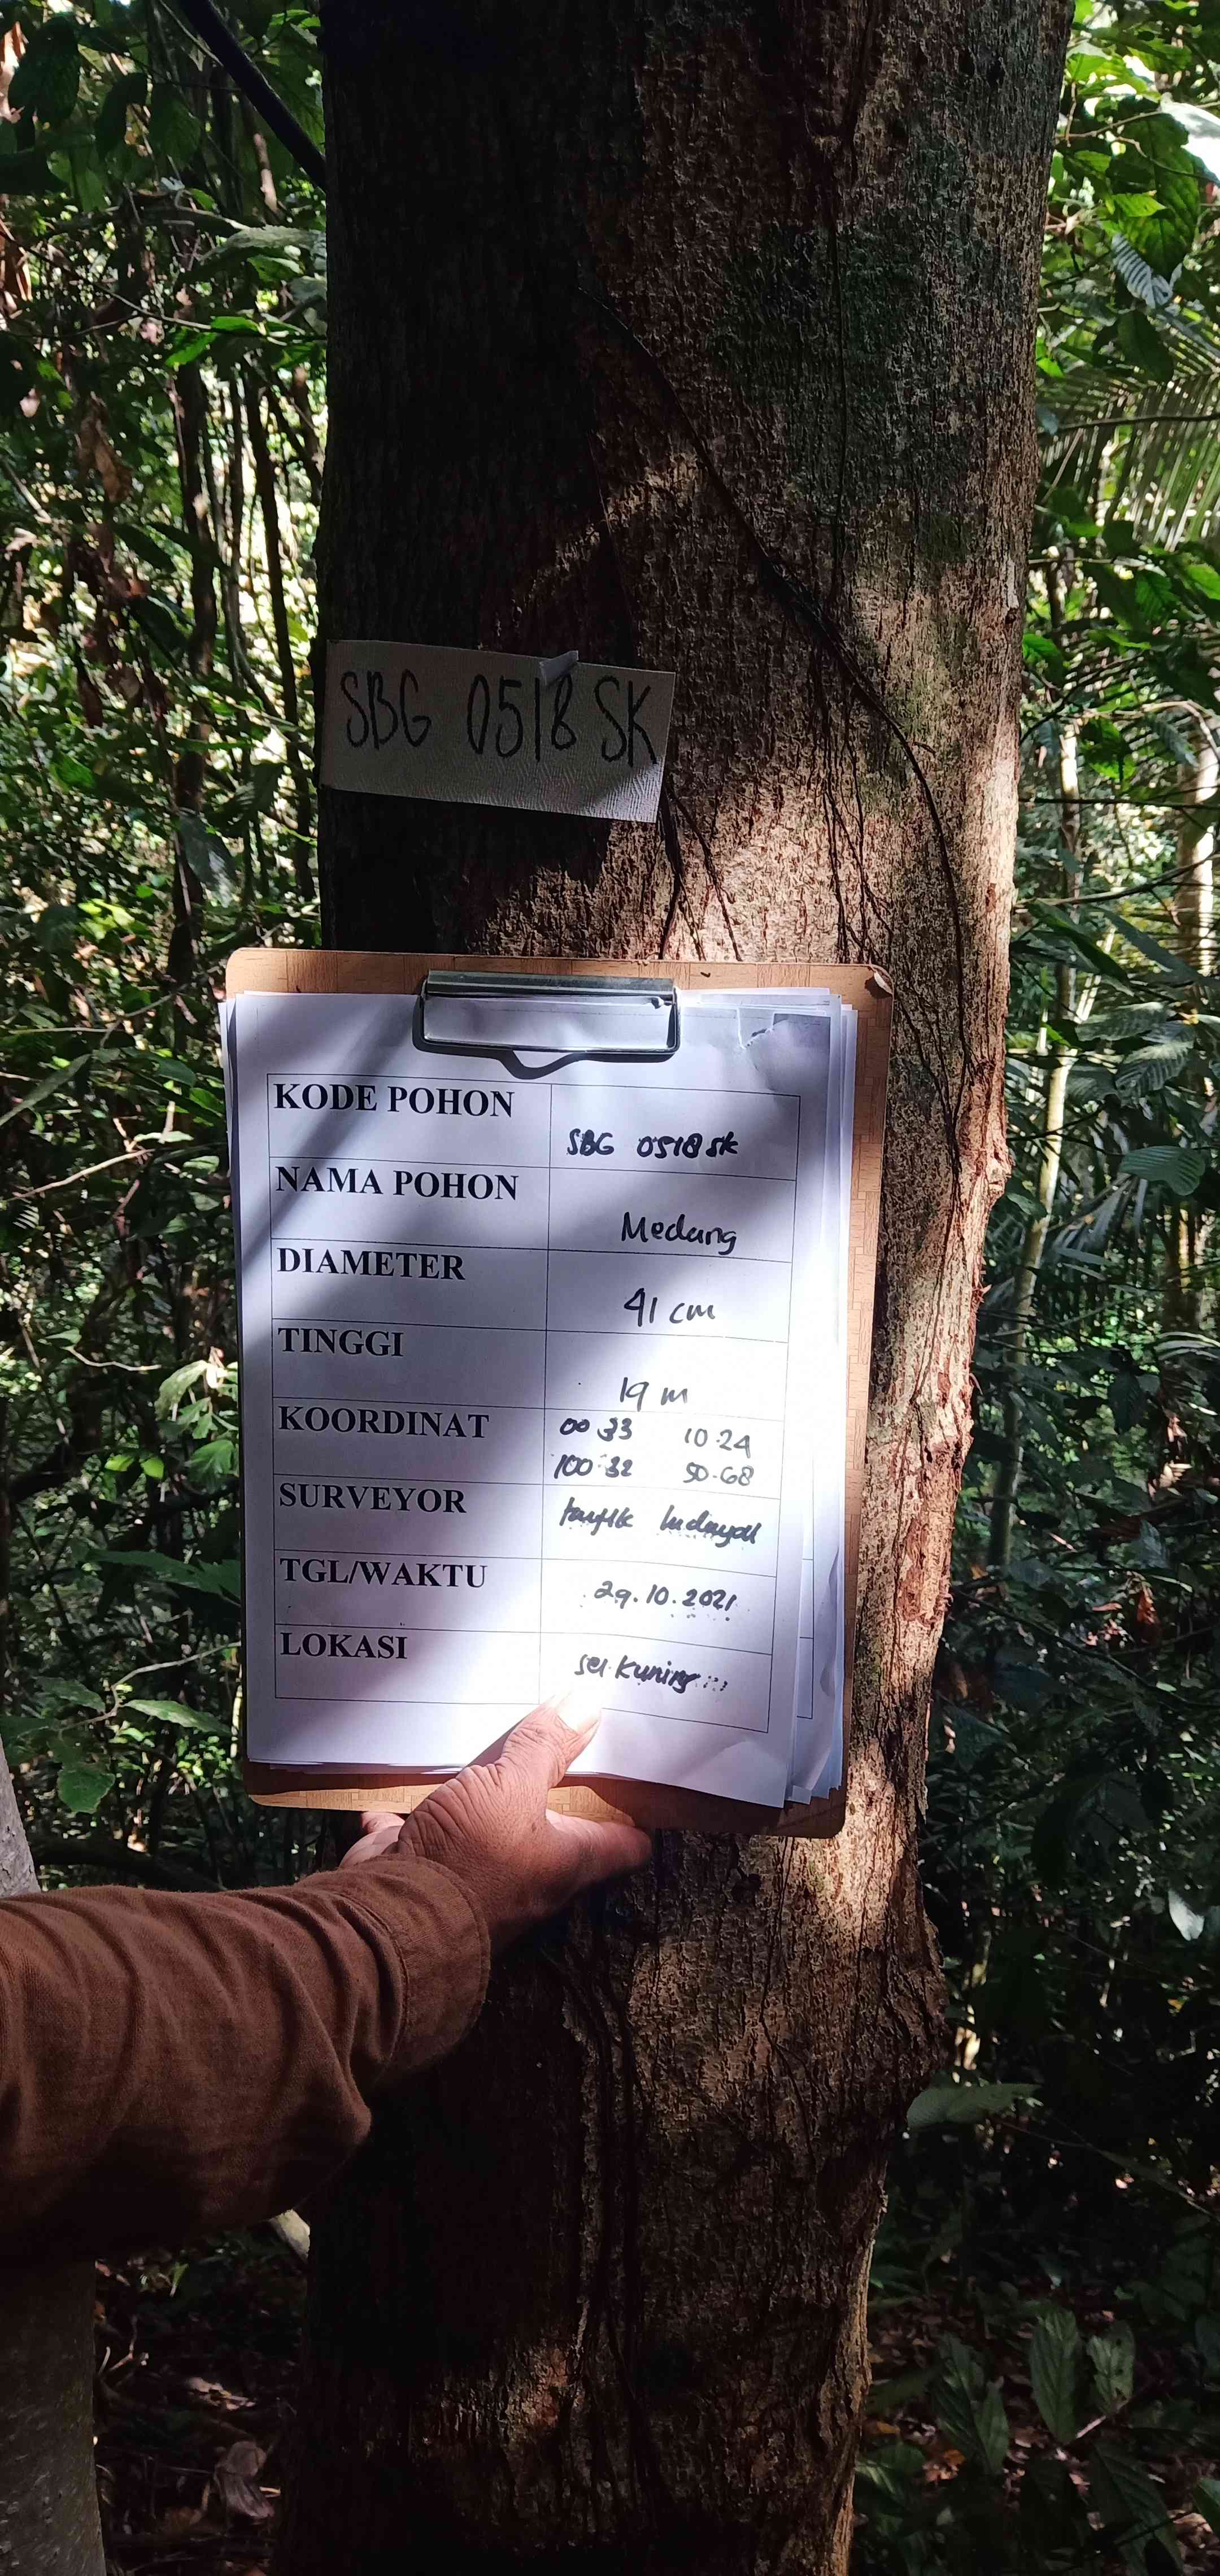 SBG 0518 SK
KODE POHON SBG 0518 SK
NAMA POHON Medang
DIAMETER 41 cm
TINGGI 19 m
KOORDINAT 00 33 10.24
100 32 50.68
SURVEYOR taufik hidayat
TGL/WAKTU 29.10.2021
LOKASI sei Kuning